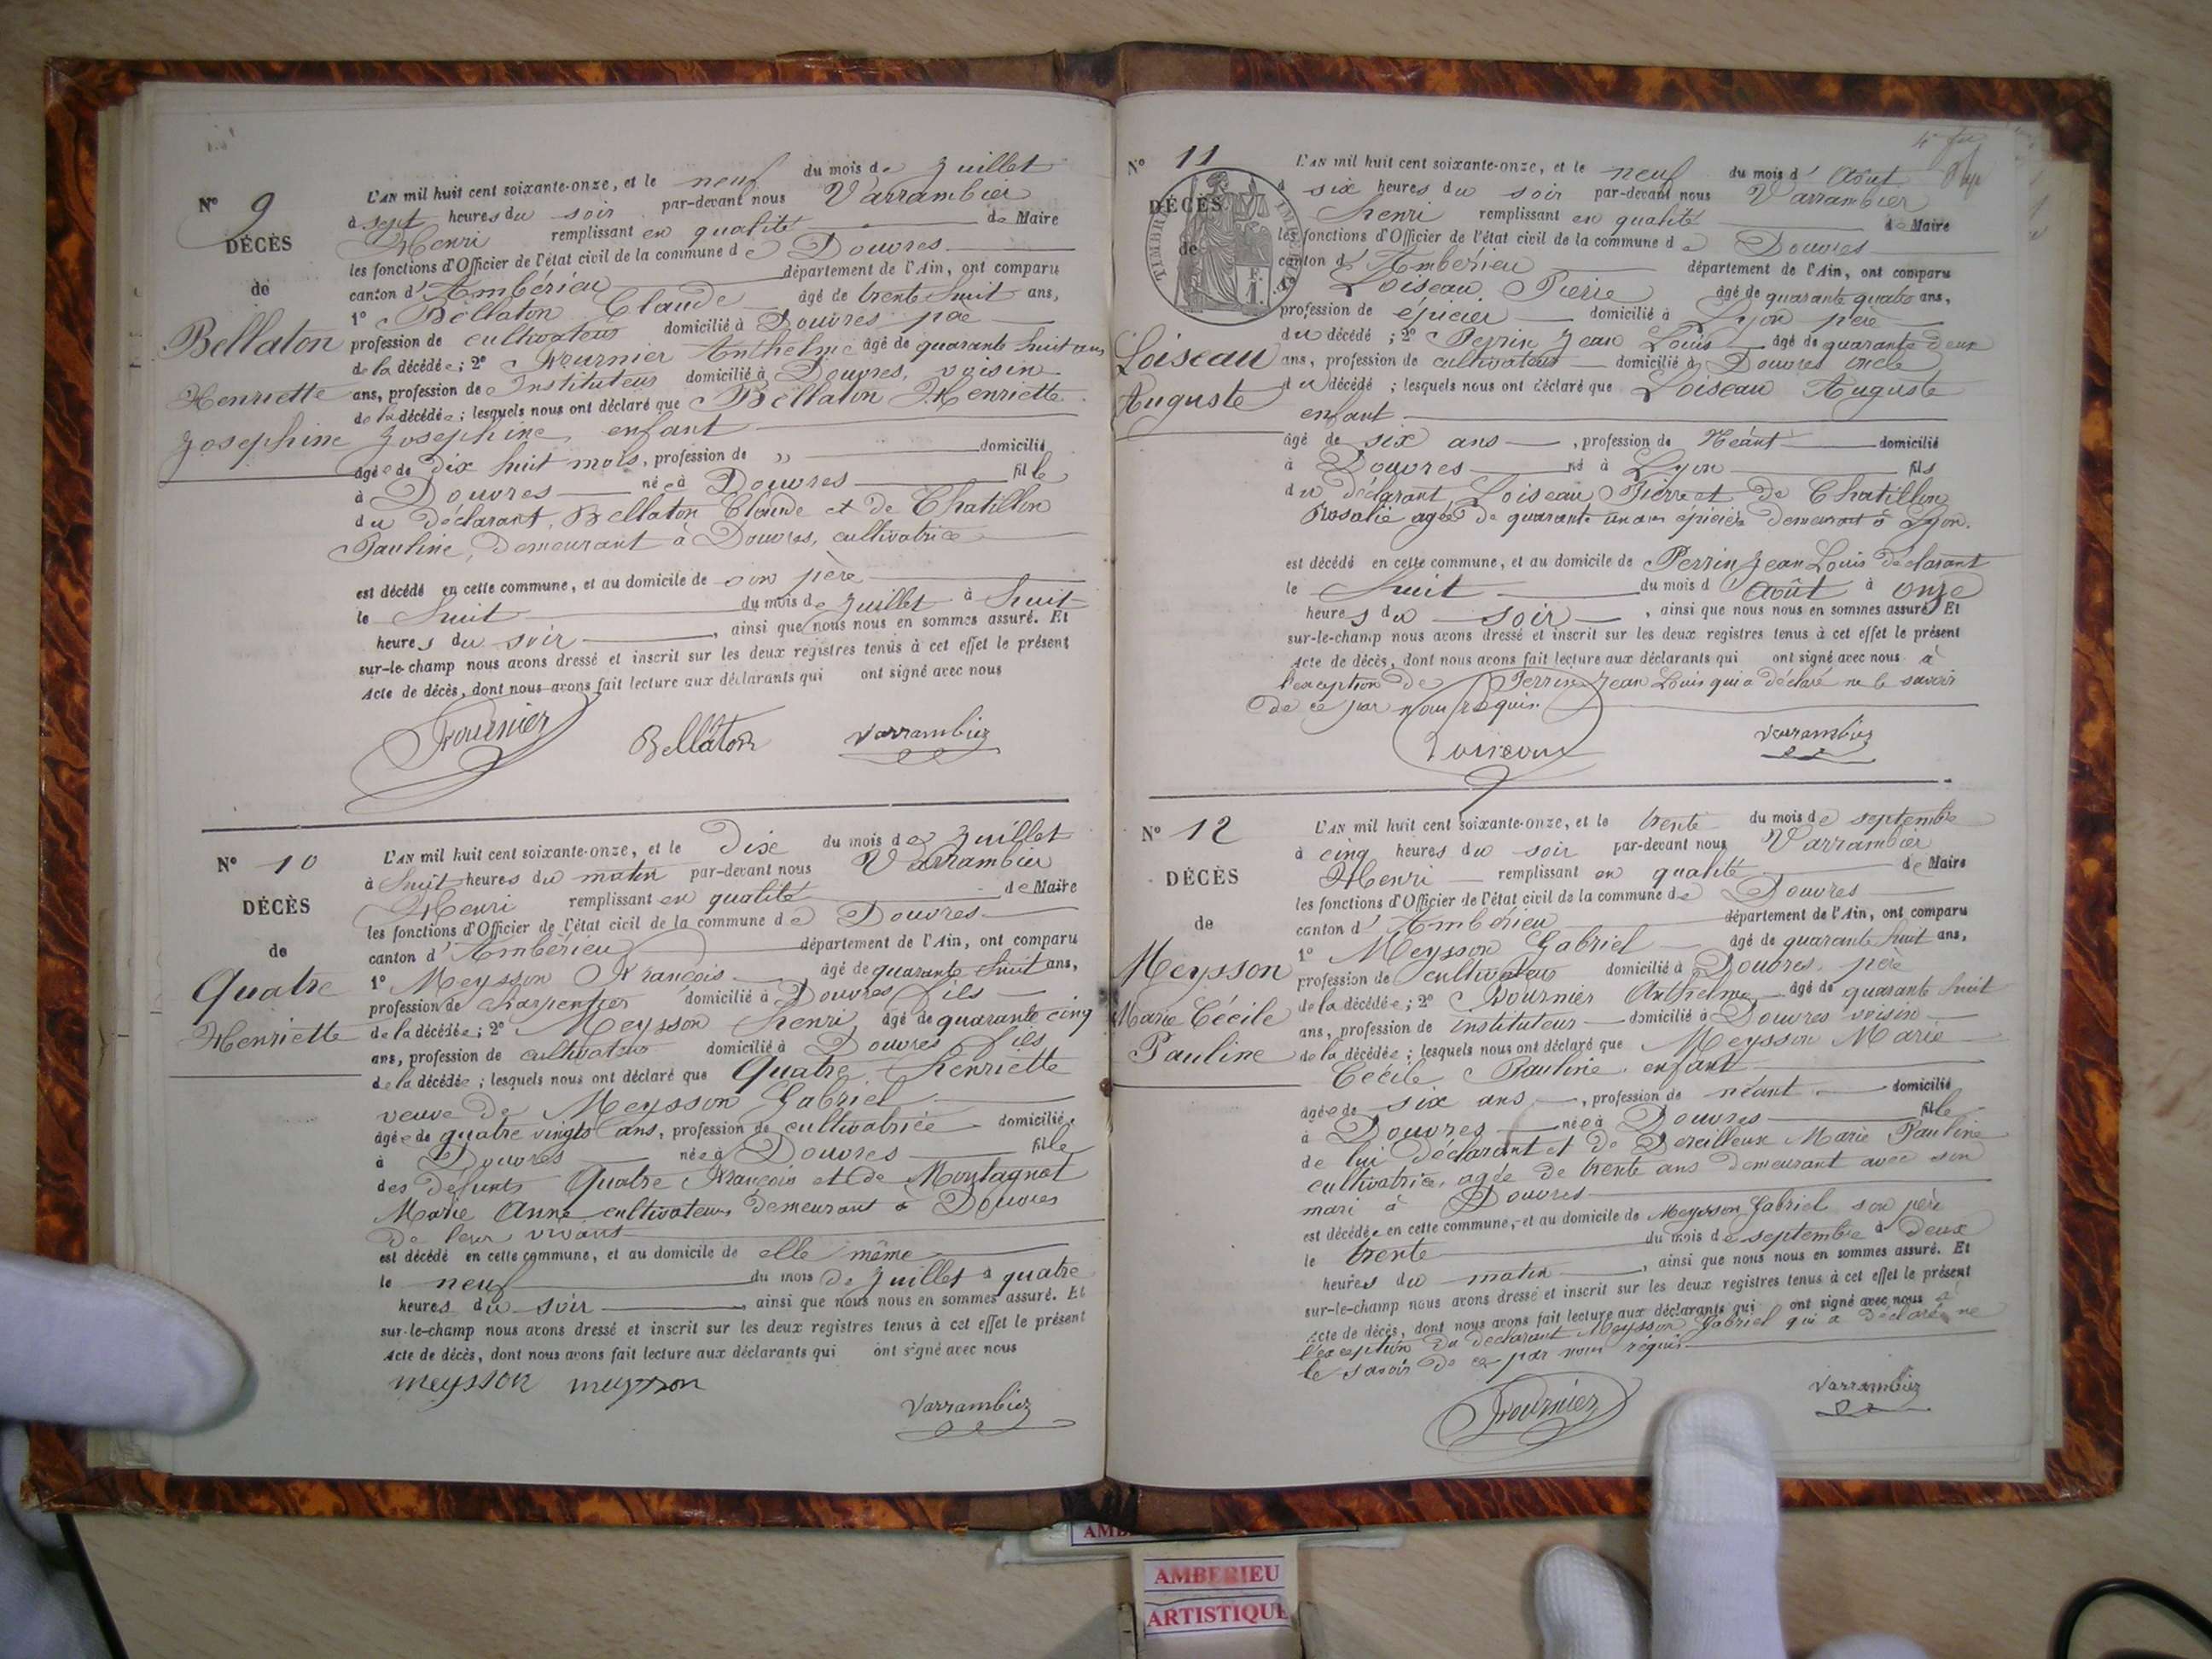 N° 9
DÉCÈS
de
Bellaton
Henriette
Josephine
L'AN mil huit cent soixante-onze, et le neuf du mois de Juillet
à sept heures du soir par-devant nous Varrambier
Henri remplissant en qualité de Maire
les fonctions d'Officier de l'état civil de la commune de Douvres
canton d'Ambérieu département de l'Ain, ont comparu
1° Bellaton Claude âgé de trente huit ans,
profession de cultivateur domicilié à Douvres père
de la décédée; 2° Fournier Anthelme âgé de quarante huit ans
ans, profession de Instituteur domicilié à Douvres, voisin
de la décédée; lesquels nous ont déclaré que Bellaton Henriette
Josephine, enfant
âgée de dix huit mois, profession de " domicilié
à Douvres née à Douvres fille
du déclarant, Bellaton Claude et de Chatillon
Pauline, demeurant à Douvres, cultivatrice
est décédé en cette commune, et au domicile de son père
le huit du mois de Juillet à huit
heures du soir, ainsi que nous nous en sommes assuré. Et
sur-le-champ nous avons dressé et inscrit sur les deux registres tenus à cet effet le présent
Acte de décès, dont nous avons fait lecture aux déclarants qui ont signé avec nous
Fournier Bellaton Varrambier
N° 10
DÉCÈS
de
Quatre
Henriette
L'AN mil huit cent soixante-onze, et le Dix du mois de Juillet
à huit heures du matin par-devant nous Varrambier
Henri remplissant en qualité de Maire
les fonctions d'Officier de l'état civil de la commune de Douvres
canton d'Ambérieu département de l'Ain, ont comparu
1° Meysson François âgé de quarante huit ans,
profession de charpentier domicilié à Douvres fils
de la décédée; 2° Meysson henri âgé de quarante cinq
ans, profession de cultivateur domicilié à Douvres fils
de la décédée; lesquels nous ont déclaré que Quatre henriette
veuve de Meysson Gabriel
âgée de quatre vingts ans, profession de cultivatrice domicilié
à Douvres née à Douvres fille
des défunts Quatre François et de Montagnat
Marie Anne cultivateurs demeurant à Douvres
de leur vivant
est décédé en cette commune, et au domicile de elle même
le neuf du mois de Juillet à quatre
heures du soir, ainsi que nous nous en sommes assuré. Et
sur-le-champ nous avons dressé et inscrit sur les deux registres tenus à cet effet le présent
Acte de décès, dont nous avons fait lecture aux déclarants qui ont signé avec nous
meysson meysson
Varrambier
N° 11
DÉCÈS
de
Loiseau
Auguste
L'AN mil huit cent soixante-onze, et le neuf du mois d'Août
à six heures du soir par-devant nous Varrambier
henri remplissant en qualité de Maire
les fonctions d'Officier de l'état civil de la commune de Douvres
canton d'Ambérieu département de l'Ain, ont comparu
Loiseau Pierre âgé de quarante quatre ans,
profession de épicier domicilié à Lyon père
du décédé; 2° Perrin Jean Louis âgé de quarante deux
ans, profession de cultivateur domicilié à Douvres oncle
du décédé; lesquels nous ont déclaré que Loiseau Auguste
enfant
âgé de six ans, profession de Néant domicilié
à Douvres né à Lyon fils
du déclarant Loiseau Pierre et de Chatillon
Rosalie agée de quarante un ans épicière demeurant à Lyon.
est décédé en cette commune, et au domicile de Perrin Jean Louis déclarant
le huit du mois d'août à onze
heures du soir, ainsi que nous nous en sommes assuré. Et
sur-le-champ nous avons dressé et inscrit sur les deux registres tenus à cet effet le présent
Acte de décès, dont nous avons fait lecture aux déclarants qui ont signé avec nous à
l'exception de Perrin Jean Louis qui a déclaré ne le savoir
de ce par nous requis.
Loiseau
Varrambier
N° 12
DÉCÈS
de
Meysson
Marie Cécile
Pauline
L'AN mil huit cent soixante-onze, et le trente du mois de septembre
à cinq heures du soir par-devant nous Varrambier
Henri remplissant en qualité de Maire
les fonctions d'Officier de l'état civil de la commune de Douvres
canton d'Ambérieu département de l'Ain, ont comparu
1° Meysson Gabriel âgé de quarante huit ans,
profession de cultivateur domicilié à Douvres, père
de la décédée; 2° Fournier Anthelme âgé de quarante huit
ans, profession de instituteur domicilié à Douvres voisin
de la décédée; lesquels nous ont déclaré que Meysson Marie
Cécile Pauline, enfant
âgée de six ans, profession de néant domicilié
à Douvres née à Douvres fille
de lui déclarant et de Marie Pauline
cultivatrice, agée de trente ans demeurant avec son
mari à Douvres
est décédée en cette commune, et au domicile de Meysson Gabriel son père
le trente du mois de septembre à deux
heures du matin, ainsi que nous nous en sommes assuré. Et
sur-le-champ nous avons dressé et inscrit sur les deux registres tenus à cet effet le présent
Acte de décès, dont nous avons fait lecture aux déclarants qui ont signé avec nous à
l'exception du déclarant Meysson Gabriel qui a déclaré ne
le savoir de ce par nous requis
Fournier
Varrambier
AMBERIEU
ARTISTIQUE